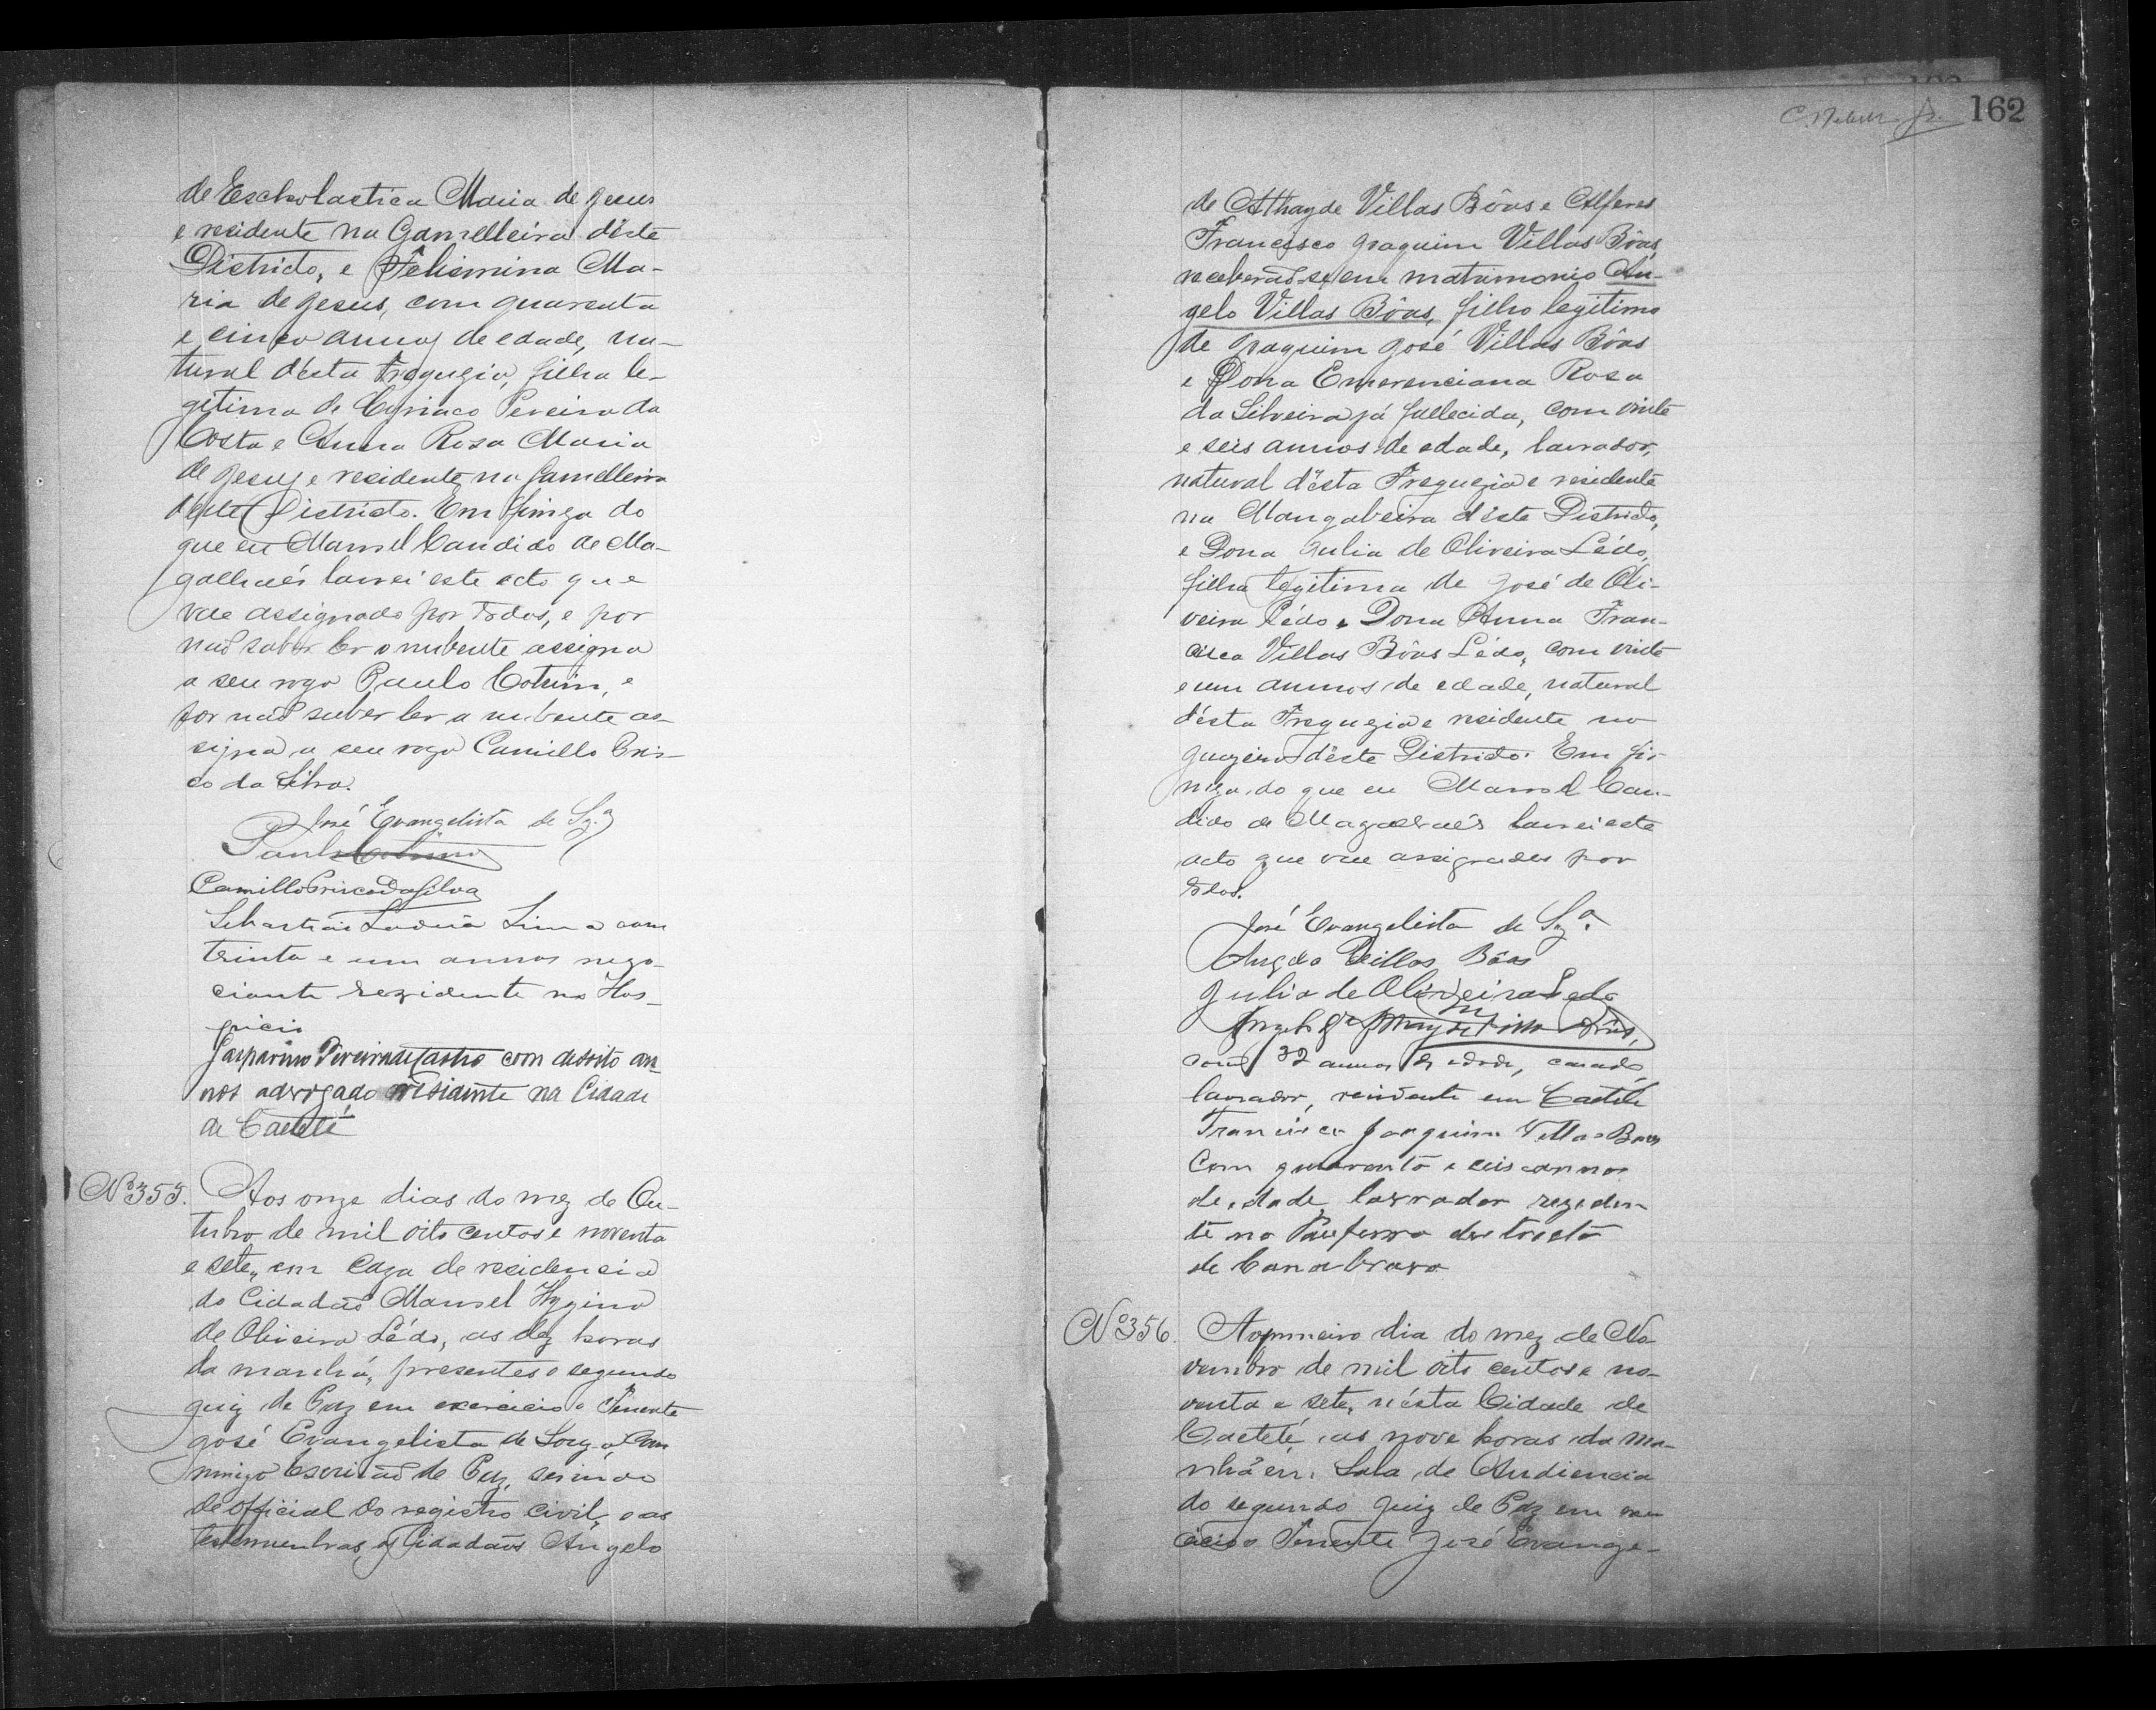 de Escholastica Maria de Jesus
e residente na Gamelleira d'éste
Districto, e Felismina Ma-
ria de Jesus, com quarenta
e cinco annos de edade, na-
tural d'ésta Freguezia, filha le-
gitima de Cyriaco Pereira da
Costa e Anna Roza Maria
de Jesus e residente na Gamelleira
d'éste Districto. Em firmeza do
que eu Manoel Candido de Ma-
galhaés lavrei este acto que
vae assignado por todos, e por
naõ saber ler o nubente assigna
a seu rogo Paulo Cotrim, e
por naõ saber ler a nubente as-
signa a seu rogo Camillo Pris-
co da Silva.
José Evangelista de Sza
Paulo Cotrim
Camillo Prisco da Silva
Sebastião Lima com
trinta e um annos nego-
ciante rezidente no Hos-
picio
Gasparino Pereira de Castro com desoito an-
nos advogado residente na Cidade
de Caeteté
Nº 355. Aos onze dias do mez de Ou-
tubro de mil oito centos e noventa
e sete, em caza de residencia
do Cidadaõ Manoel Hygino
de Oliveira Lédo, as dez horas
da manhã, presentes o segundo
Juiz de Paz em exercicio o Tenente
José Evangelista de Souza, Com
migo Escrivaõ de Paz, servindo
de official do registro civil, e as
testemunhas, os Cidadaõs Angelo
C. Jr. 162
de Athayde Villas Bôas e Alferes
Francisco Joaquim Villas Bôas
receberaõ-se em matrimonio An-
gelo Villas Bôas, filho legitimo
de Joaquim José Villas Bôas
e Dona Emerenciana Rosa
da Silveira já fallecida, com vinte
e seis annos de edade, lavrador,
natural d'ésta Freguezia e residente
na Mangabeira d'éste Districto,
e Dona Julia de Oliveira Lédo,
filha legitima de José de Oli-
veira Lédo e Dona Anna Fran-
cisca Villas Bôas Lédo, com vinte
e um annos de edade, natural
d'ésta Freguezia e residente no
Juazeiro d'éste Districto. Em fir-
meza do que eu Manoel Can-
dido de Magalhaés lavrei este
acto que vae assignado por
todos.
José Evangelista de Sza.
Angelo Villas Bôas
Julia de Oliveira Ledo
Angelo de Athayde Villas Bôas,
com 32 annos de edade, casado,
lavrador, residente em Caeteté
Francisco Joaquim Villas Boas
Com quarenta e seis annos
de edade, lavrador rezeden-
te no Pau ferro destricto
de Canabrava
Nº 356. Ao primeiro dia do mez de No
vembro de mil oito centos e no-
venta e sete, n'ésta Cidade de
Caeteté, as nove horas da ma-
nhã em Sala de Audiencia
do segundo Juiz de Paz em exer
cicio o Tenente José Evange-